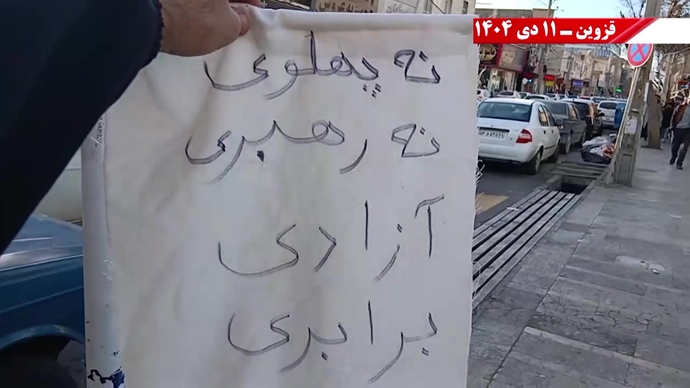 قزوین ـ ۱۱ دی ۱۴۰۴
نه پهلوی
نه رهبری
آزادی
برابری